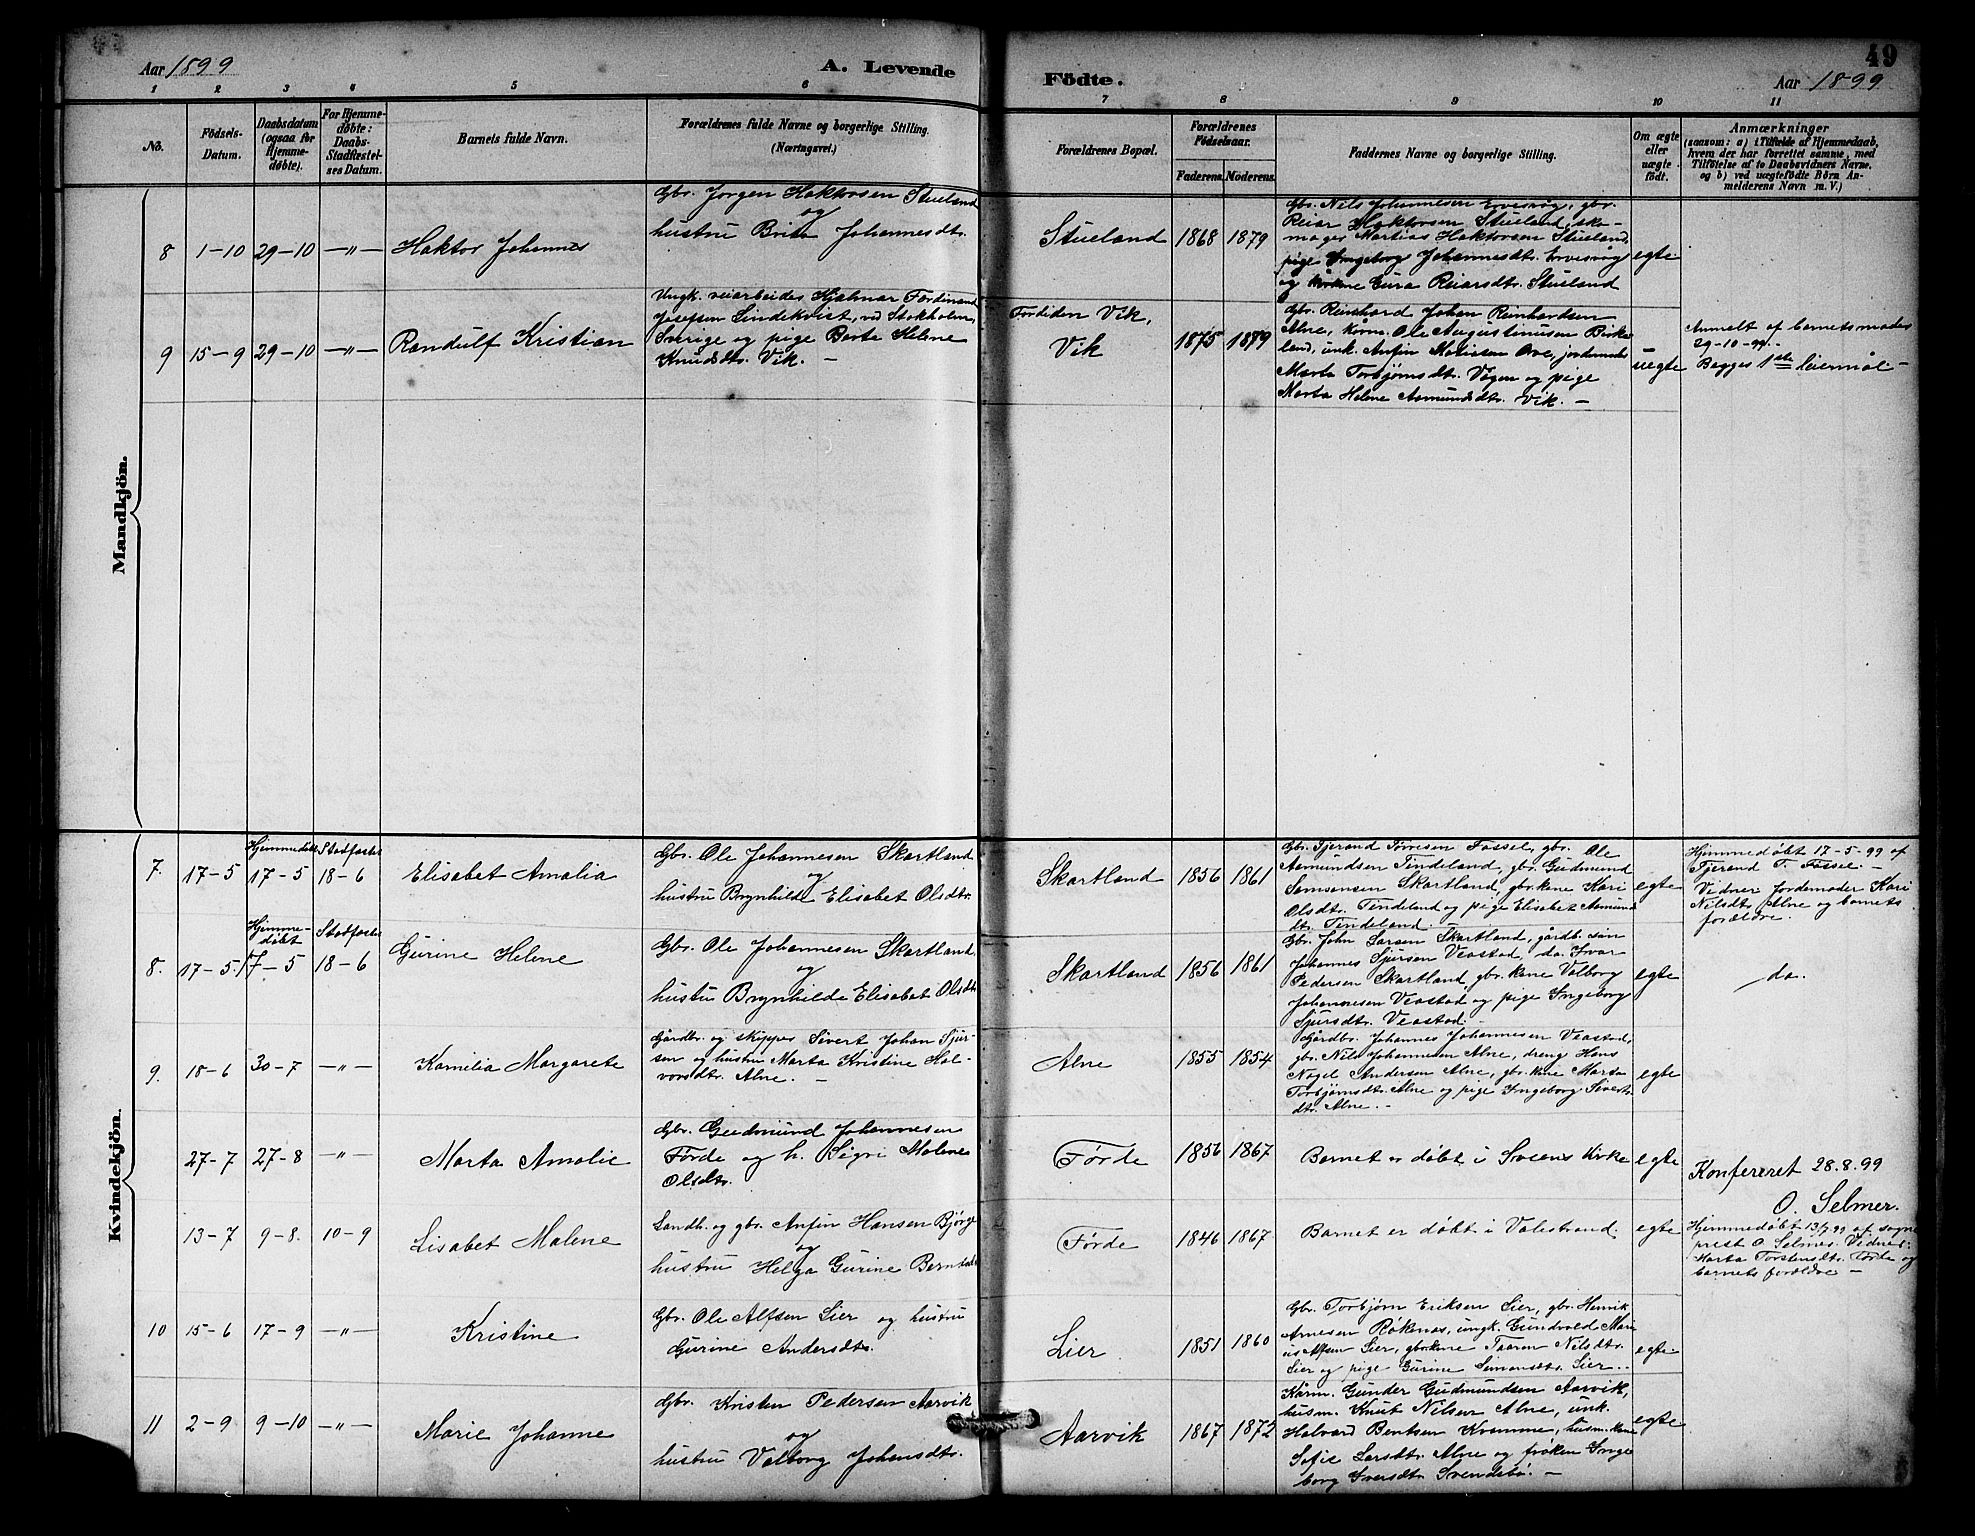 Aar 1899
A. Levende
Födte.
49
Aar 1899
1 2 3 4 5 6 7 8 9 10 11
No.
Födsels-
Datum.
Daabsdatum
(ogsaa for
Hjemme-
døbte).
For Hjemme-
døbte:
Daabs-
Stadfæstel-
ses Datum.
Barnets fulde Navn.
Forældrenes fulde Navne og borgerlige Stilling.
(Næringsvei.)
Forældrenes Bopæl.
Forældrenes
Födselsaar.
Faderens. Moderens.
Faddernes Navne og borgerlige Stilling.
Om ægte
eller
uægte
födt.
Anmærkninger
(saasom: a) i Tilfælde af Hjemmedaab,
hvem der har forrettet samme, med
Tilföielse af to Daabsvidners Navne.
og b) ved uægtefödte Börn An-
melderens Navn m. V.)
Mandkjön.
8 1-10 29-10 -"- Haktor Johannes
Gbr. Jørgen Haktorsen Stueland
og
hustru Brita Johannesdtr.
Stueland 1868 1879
Gbr. Nils Johannesen Ervesvåg, gbr.
Reiar Haktorsen Stueland, sko-
mager Martias Haktorsen Stueland,
pige Ingeborg Johannesdtr. Ervesvåg
og kone Gura Reiarsdtr. Stueland
egte
9 15-9 29-10 -"- Randulf Kristian
Ungk. veiarbeider Hjalmar Ferdinand
Josefsen Lindekvist, ved Stokholm,
Sverige og pige Berta Helene
Knudsdtr. Vik. -
Vik,
Vik
1875 1879
Gbr. Reinhard Johan Reinhardsen
Alne, kårm. Ole Augustinusen Birke-
land, unk. Anfin
Marta Torbjørnsdtr. Vågen og pige
Marta Helene Asmundsdtr. Vik. -
uegte
Anmelt af barnets moder
29-10-99.
Begges 1ste leiermål. -
Kvindekjön.
7. 17-5
Hjemmedøbt
17-5
Stadfæstet
18-6
Elisabet Amalia
Gbr. Ole Johannesen Skartland
og
hustru Brynhilde Elisabet Olsdtr.
Skartland 1856 1861
Gbr. Tjerand Tørresen Fossel, gbr. Ole
Asmundsen Tindeland, gbr. Gudmund
Samsonsen Skartland, gbr. kone Kari
Olsdtr. Tindeland og pige Elisabet Asmunds
dtr. Tindeland.
egte
Hjemmedøbt 17-5-99 af
Tjerand T. Fossel. -
Vidner Jordemoder Kari
Nilsdtr. Alne og barnets
forældre. -
8. 17-5.
Hjemme-
døbt
17-5
Stadfæstet
18-6
Gurine Helene
Gbr. Ole Johannesen Skartland
og
hustru Brynhilde Elisabet Olsdtr.
Skartland 1856 1861
Gbr. John Larsen Skartland, gårdb. søn
Johannes Sjursen Veastad, do. Ivar
Pedersen Skartland, gbr. kone Valborg
Johannesen Veastad og pige Ingeborg
Sjursdtr. Veastad.
egte
do.
9. 18-6 30-7 -"- Kamilia Margarete
Gårdbr. og skipper Sivert Johan Sjur-
sen og hustru Marta Kristine Hal-
vorsdtr. Alne. -
Alne 1855 1854
Gårdbr. Johannes Johannesen Veastad,
gbr. Nils Johannesen Alne, dreng Hans
Nagel Andersen Alne, gbr. kone Marta
Torbjørnsdtr. Alne og pige Ingeborg Siverts
dtr. Alne. -
egte
27-7 27-8 -"- Marta Amalie
Gbr. Gudmund Johannesen
Førde og h. Sigri Malene
Olsdtr.
Førde 1856 1867
Barnet er døbt i Sveens Kirke
egte
Konfereret 28.8.99
O. Selmer.
13-7 9-8. 10-9 Lisabet Malene
Landh. og gbr. Anfin Hansen Bjørge
og
hustru Helga Gurine
Førde 1846 1867
Barnet er døbt i Valestrand.
egte
Hjemmedøbt 13/7.99 af sogne
prest O. Selmer. Vidner:
Marta Torstensdtr. Førde og
barnets forældre -
10 15-6 17-9 -"- Kristine
Gbr. Ole Alfsen Lier og hustru
Gurine Andersdtr.
Lier 1851 1860
Gbr. Torbjørn Eriksen Lier, gbr. Henrik
Arnesen Røkenes, ungk. Gundvald Mari-
us Alfsen Lier, gbr.kone Taaren Nilsdtr.
Lier og pige Gurine Simonsdtr. Lier. -
egte
11 2-9 9-10 -"- Marie Johanne
Gbr. Kristen Pedersen Aarvik
og
hustru Valborg Johansdtr.
Aarvik 1867 1872
Kårm. Gunder Gudmundsen Aarvik,
husm. Knut Nilsen Alne, unk.
Halvard Bentsen Kvamme, husm. kone
Sofie Larsdtr. Alne og frøken Inge
borg Iversdtr. Svendsbø. -
egte